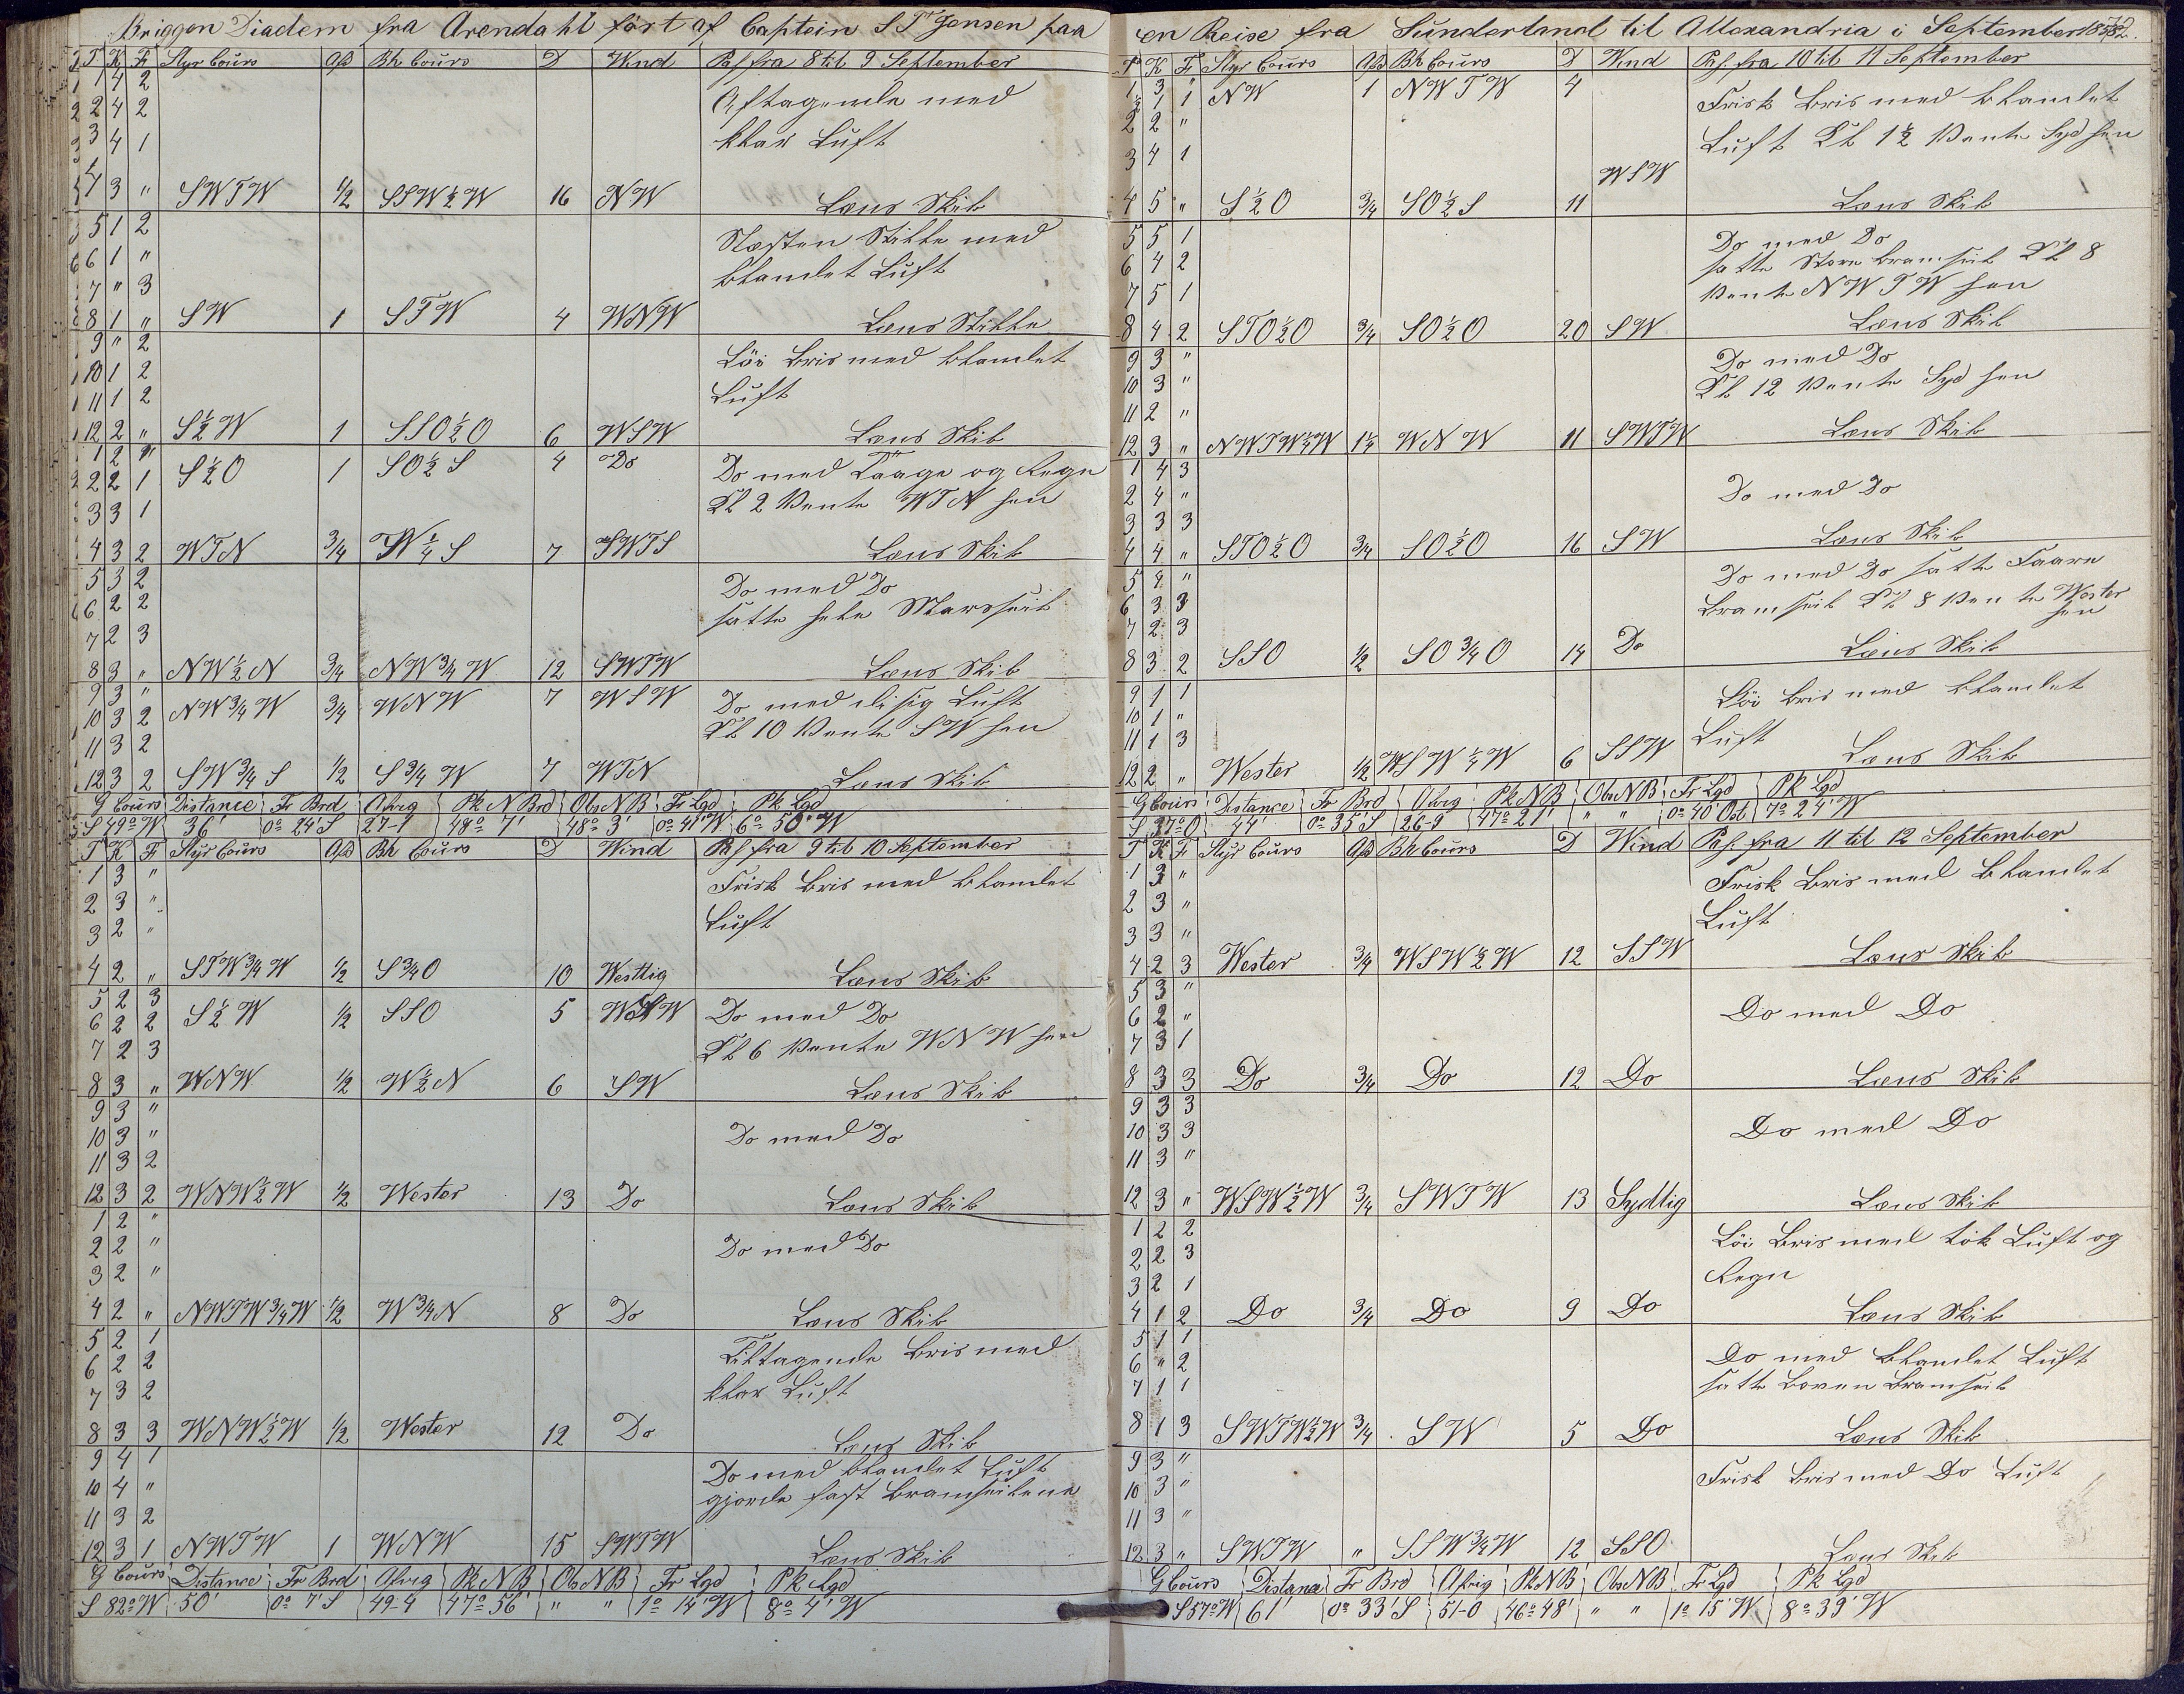 Briggen Diadem fra Arendahl fört af Captein S T Jensen paa
T K F Styr Cours Afd Bh Cours D Wind Pas fra 8 til 9 September
1 4 2 Aftagende med
2 4 2
3 4 1 klar Luft
4 3 " SWTW 1/2 SSW½W 16 NW Læns Skib
5 1 2 Næsten Stille med
6 1 " blandet Luft
7 " 3
8 1 " SW 1 STW 4 WNW Læns Stille
9 " 2 Löi Bris med blandet
10 1 2 Luft
11 1 2
12 2 " S½W 1 SSO½O 6 WSW Læns Skib
1 2 " Do med Taage og Regn
2 2 1 S½O 1 SO½S 4 Do Kl 2 Vente WTN hen
3 3 1
4 3 2 WTN 3/4 W¼S 7 SWTS Læns Skib
5 3 2 Do med Do
6 2 2 satte hele Marsseil
7 2 3
8 3 " NW½N 3/4 NW3/4W 12 SWTW Læns Skib
9 3 " Do med disig Luft
10 3 2 NW3/4W 3/4 WNW 7 WSW Kl 10 Vente SW hen
11 3 2
12 3 2 SW3/4S 1/2 S3/4W 7 WTN Læns Skib
G Cours Distance Fr Brd Afvig Pk N Brd Obs N B Fr Lgd Pk Lgd
S 49° W 36' 0° 24' S 27-1 48° 7' 48° 3' 0° 41' W 6° 50' W
T K F Styr Cours Afd Bh Cours D Wind Pas fra 9 til 10 September
1 3 " Frisk Bris med blandet
2 3 " Luft
3 2 "
4 2 " STW3/4W 1/2 S3/4O 10 Westlig Læns Skib
5 2 3 Do med Do
6 2 2 S½W 1/2 SSO 5 WSW Kl 6 Vente WNW hen
7 2 3
8 3 " WNW 1/2 W½N 6 SW Læns Skib
9 3 "
10 3 " Do med Do
11 3 2
12 3 2 WNW½W 1/2 Wester 13 Do Læns Skib
1 2 "
2 2 " Do med Do
3 2 "
4 2 " NWTW3/4W 1/2 W3/4N 8 Do Læns Skib
5 2 1 Tiltagende Bris med
6 2 2 klar Luft
7 3 2
8 3 3 WNW½W 1/2 Wester 12 Do Læns Skib
9 4 1 Do med blandet Luft
10 4 " gjorde fast Bramseilene
11 3 2
12 3 1 NWTW 1 WNW 15 SWTW Læns Skib
G Cours Distance Fr Brd Afvig Pk N B Obs N B Fr Lgd Pk Lgd
S 82° W 50' 0° 7' S 49-4 47° 56' " " 1° 14' W 8° 4' W
en Reise fra Sunderland til Allexandria i September
T K F Styr Cours Afd Bh Cours D Wind Pas fra 10 til 11 September
1 3 " Frisk Bris med blandet
½ 1 1 NW 1 NWTW 4
2 2 " Luft Kl 1½ Vente Syd hen
3 4 1
4 5 " S½O 3/4 SO½S 11 WSW Læns Skib
5 5 1 Do med Do
6 4 2 satte Store Bramseil Kl 8
7 5 1 Vente NWTW hen
8 4 2 STO½O 3/4 SO½O 20 SW Læns Skib
9 3 " Do med Do
10 3 " Kl 12 Vente Syd hen
11 2 "
12 3 " NWTW¼W 1¼ WNW 11 SWTW Læns Skib
1 4 3
2 4 " Do med Do
3 3 3
4 4 " STO½O 3/4 SO½O 16 SW Læns Skib
5 4 " Do med Do satte Faare
6 3 3 Bramseil Kl 8 Vente Wester
7 2 3 hen
8 3 2 SSO 1/2 SO3/4O 14 Do Læns Skib
9 1 1 Löi Bris med blandet
10 1 " Luft
11 1 3
12 2 " Wester 1/2 WSW¼W 6 SSW Læns Skib
G Cours Distance Fr Brd Afvig Pk N B Obs N B Fr Lgd Pk Lgd
S 37° O 44' 0° 35' S 26-9 47° 21' " " 0° 40' Ost 7° 24' W
T K F Styr Cours Afd Bh Cours D Wind Pas fra 11 til 12 September
1 3 " Frisk Bris med Blandet
2 3 " Luft
3 3 "
4 2 3 Wester 3/4 WSW½W 12 SSW Læns Skib
5 3 "
6 2 " Do med Do
7 3 1
8 3 3 Do 3/4 Do 12 Do Læns Skib
9 3 3
10 3 3 Do med Do
11 3 "
12 3 " WSW½W 3/4 SWTW 13 Sydlig Læns Skib
1 2 2 Löi Bris med tök Luft og
2 2 3 Regn
3 2 1
4 1 2 Do 3/4 Do 9 Do Læns Skib
5 1 1 Do med Blandet Luft
6 " 2 satte Boven Bramseil
7 1 1
8 1 3 SWTW½W 3/4 SW 5 Do Læns Skib
9 3 " Frisk Bris med Do Luft
10 3 "
11 3 "
12 3 " SWTW " SSW3/4W 12 SSO Læns Skib
G Cours Distanse Fr Brd Afvig Pk N B Obs N B Fr Lgd Pk Lgd
S 57° W 61' 0° 33' S 51-0 46° 48' " " 1° 15' W 8° 39' W